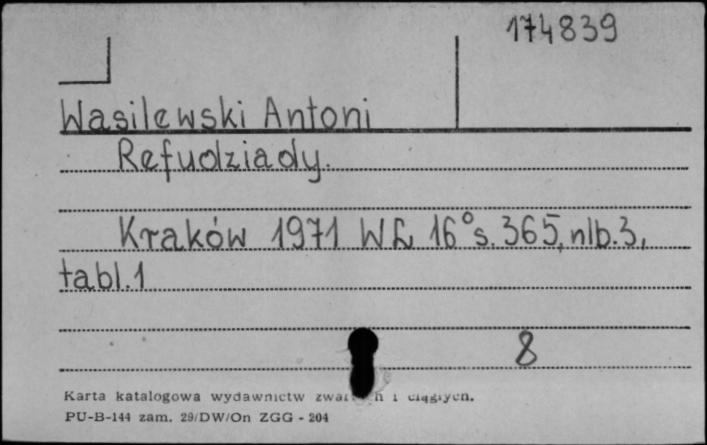 174839
Wasilewski Antoni
Refudziady.
Kraków 1971 WŁ 16° s. 365, nlb. 3,
tabl. 1
8
Karta katalogowa wydawnictw i ciągłych.
PU-B-144 zam. 29/DW/On ZGG - 204